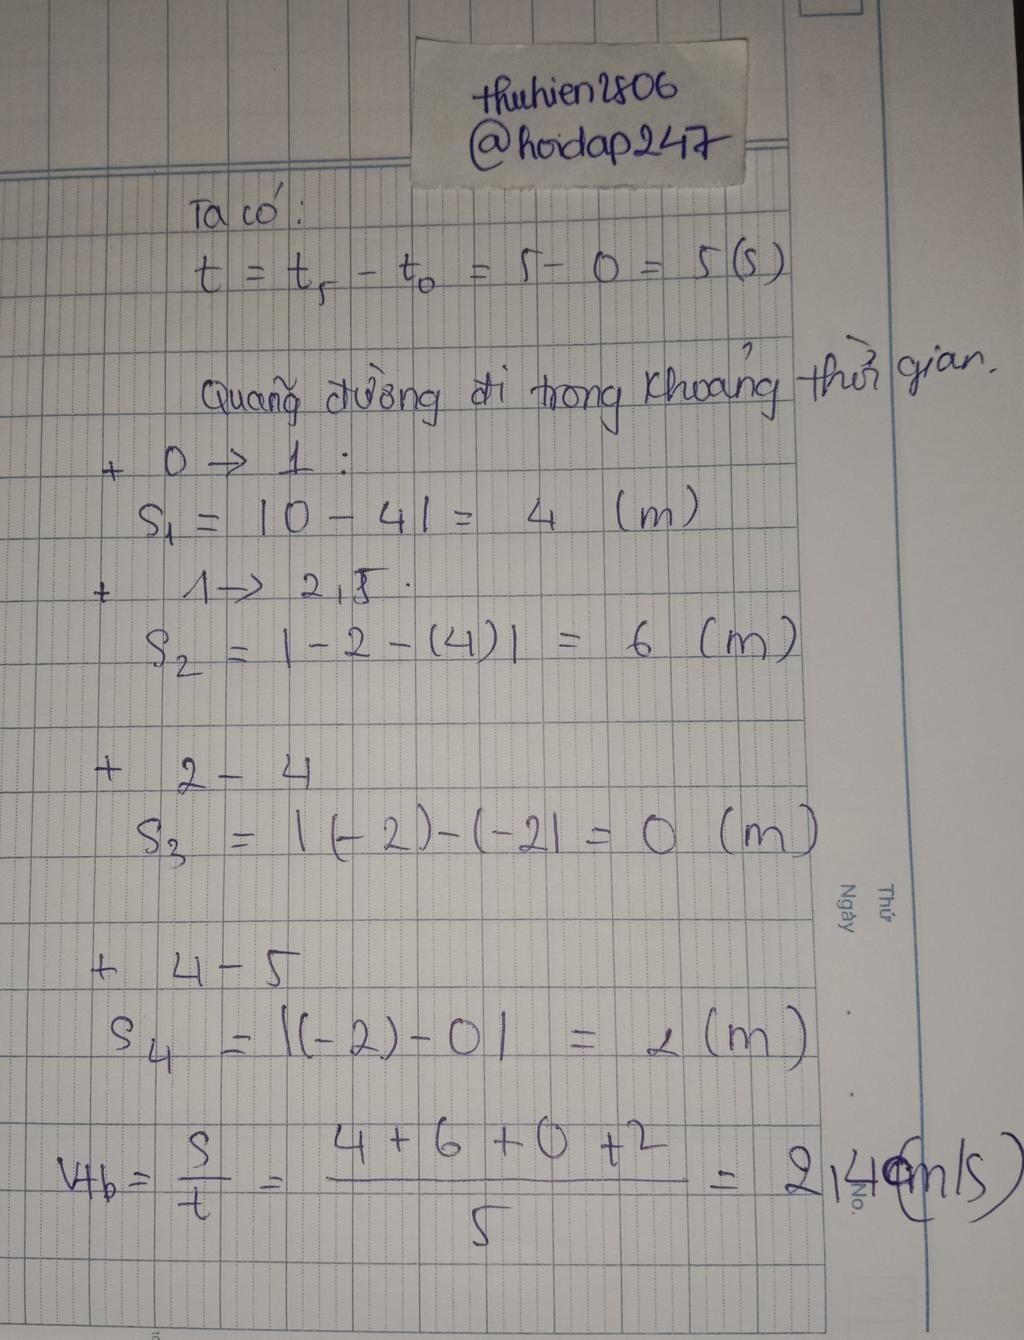 thuhien2806
@hoidap247
Ta có:
t = t₅ - t₀ = 5 - 0 = 5 (s)
Quãng đường đi trong khoảng thời gian.
+ 0 → 1 :
S₁ = |0 - 4| = 4 (m)
+ 1 → 2,5 .
S₂ = |-2 - (4)| = 6 (m)
+ 2 - 4
S₃ = |(-2) - (-2| = 0 (m)
+ 4 - 5
S₄ = |(-2) - 0| = 2 (m)
Vtb = S/t = (4 + 6 + 0 + 2)/5 = 2,4 (m/s)
Thứ
Ngày
No.